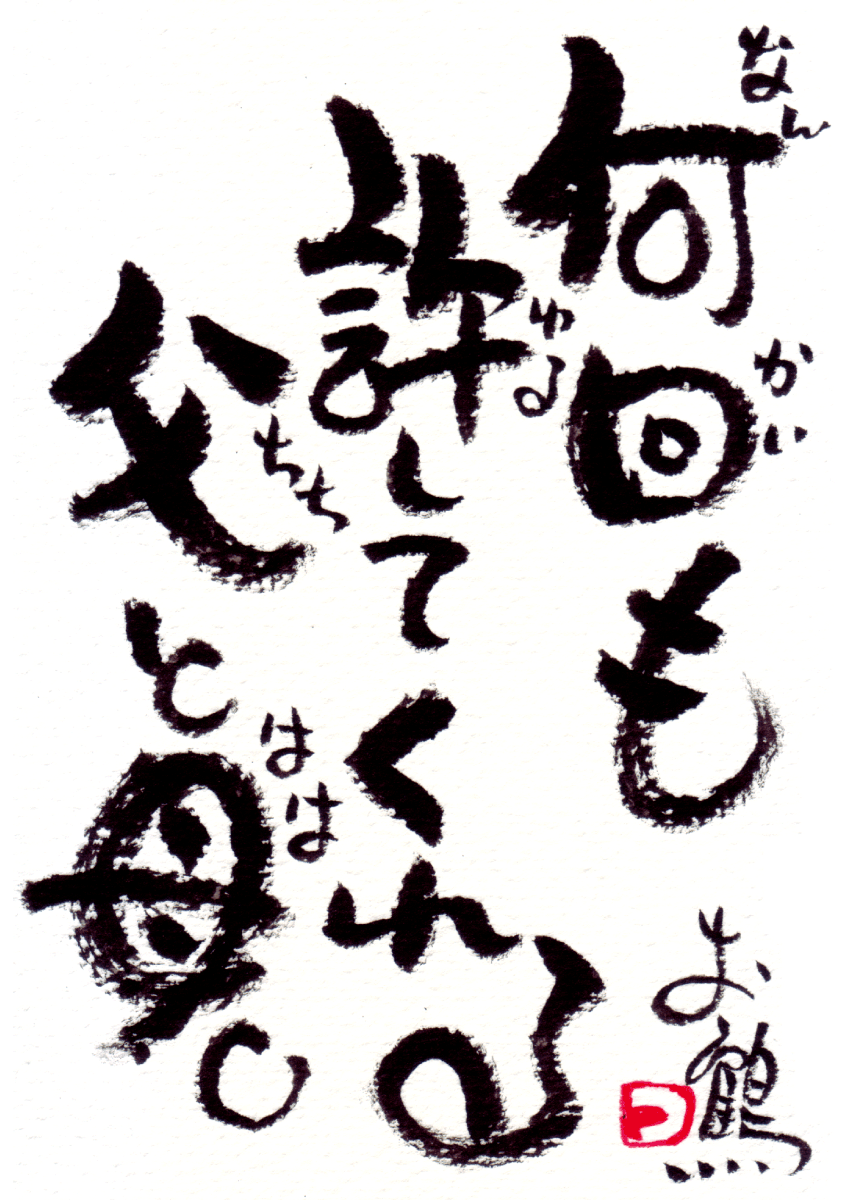 何回も
なんかい
許してくれる
ゆる
父と母。
ちち
はは
お鶴
つ